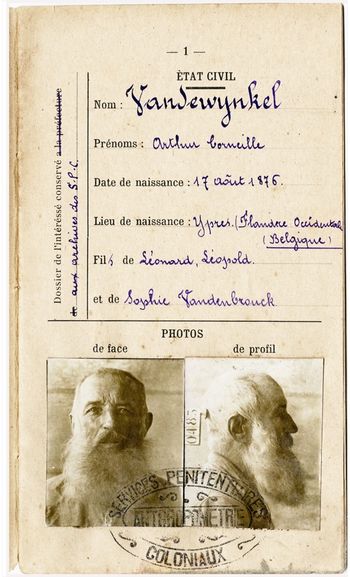 — 1 —
ÉTAT CIVIL
Nom : Vandewynkel
Prénoms : Arthur Corneille
Date de naissance : 17 août 1876.
Lieu de naissance : Ypres. (Flandre Occidentale
(Belgique)
Fils de Léonard, Léopold.
et de Sophie Vandenbrouck.
Dossier de l'intéressé conservé a la préfecture
aux archives des S.P.C.
PHOTOS
de face de profil
SERVICES PÉNITENTIAIRES
ANTHROPOMÉTRIE
COLONIAUX